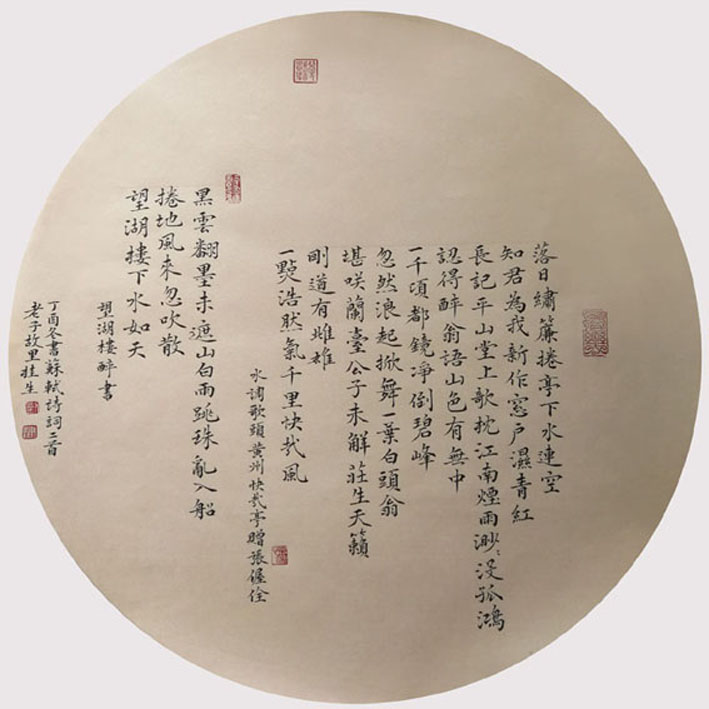 落日繡簾捲亭下水連空
知君為我新作窓戶濕青紅
長記平山堂上欹枕江南煙雨渺〻沒孤鴻
認得醉翁語山色有無中
一千頃都鏡凈倒碧峰
忽然浪起掀舞一葉白頭翁
堪咲蘭臺公子未解莊生天籟
剛道有雌雄
一點浩然氣千里快哉風
水調歌頭黃州快哉亭贈張偓佺
黑雲翻墨未遮山白雨跳珠亂入船
捲地風來忽吹散
望湖樓下水如天
望湖樓醉書
丁酉冬書蘇軾詩詞二首
老子故里桂生